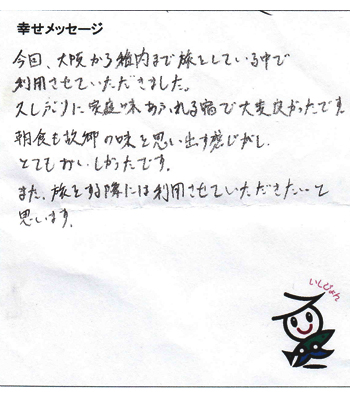 幸せメッセージ
今回、大阪から稚内まで旅をしている中で
利用させていただきました。
久しぶりに家庭味あふれる宿で大変良かったです
朝食も故郷の味を思い出す感じがし、
とてもおいしかったです。
また、旅をする際には利用させていただきたいと
思います。
いしぴょん